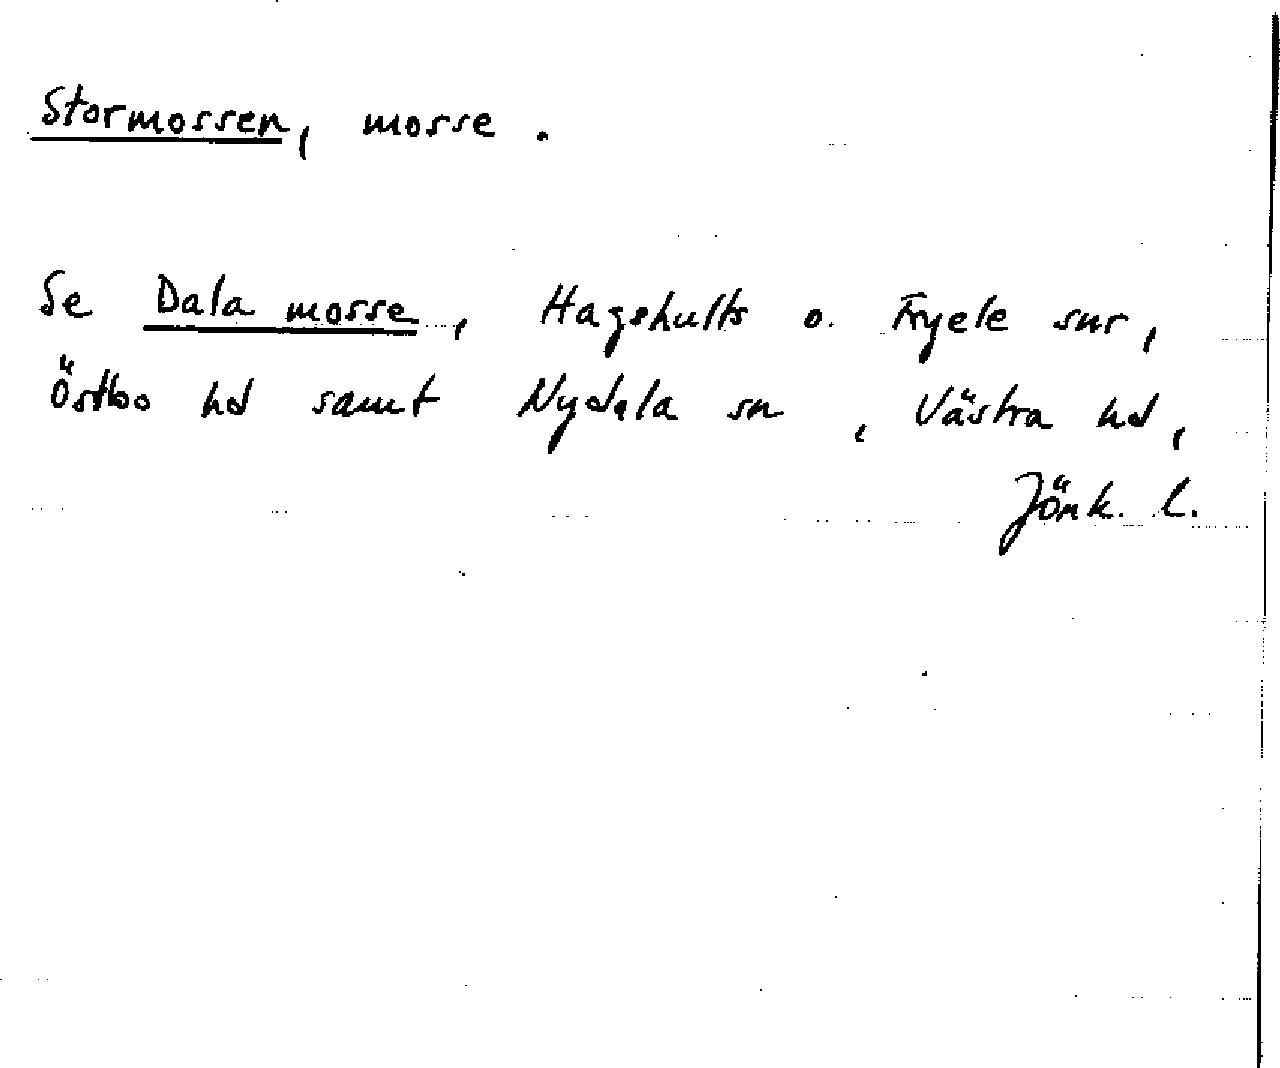 Stormossen, mosse.
Se Dala mosse, Hagshults o. Fryele snr,
Östbo hd samt Nydala sn, Västra hd,
Jönk. l.